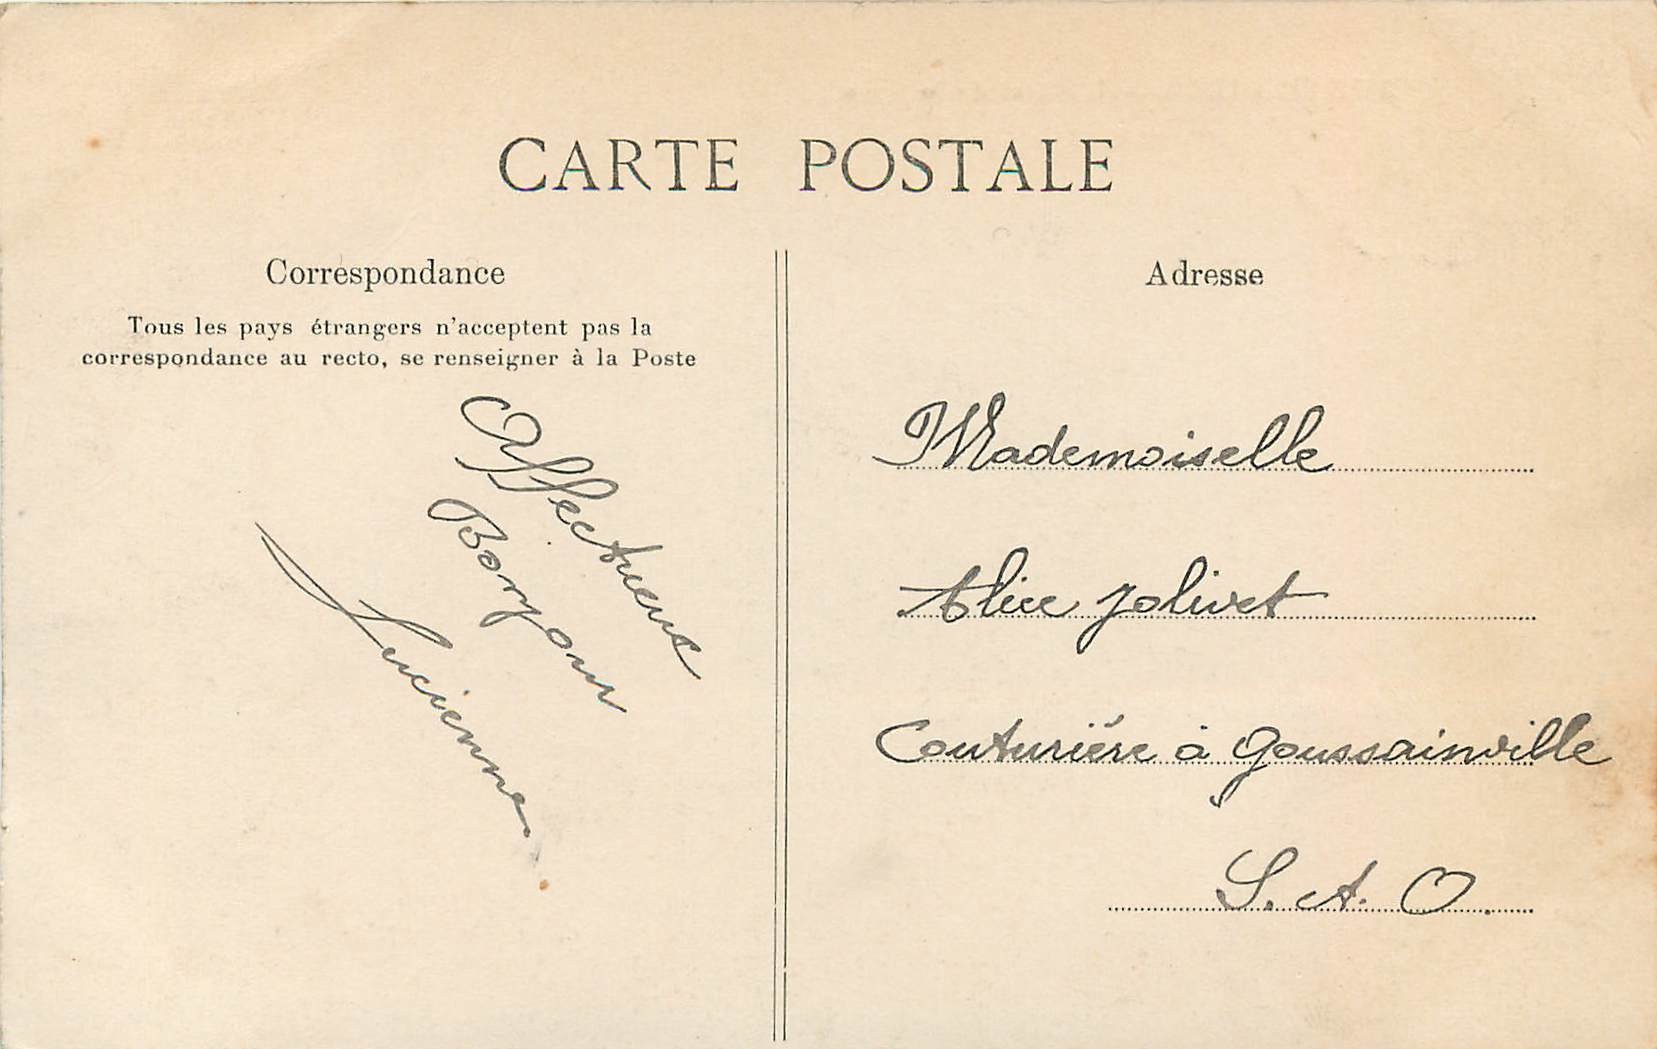 CARTE POSTALE
Correspondance
Tous les pays étrangers n'acceptent pas la
correspondance au recto, se renseigner à la Poste
Affectueux
Bonjour
Lucienne
Adresse
Mademoiselle
Alice Jolivet
Couturière à Goussainville
S. et. O.